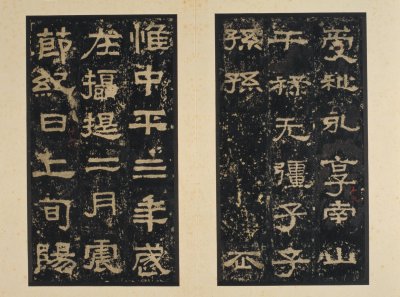 受祉永享南山
干祿无疆子子
孫孫
惟中平三年歲
在攝提二月震
節紀日上旬陽